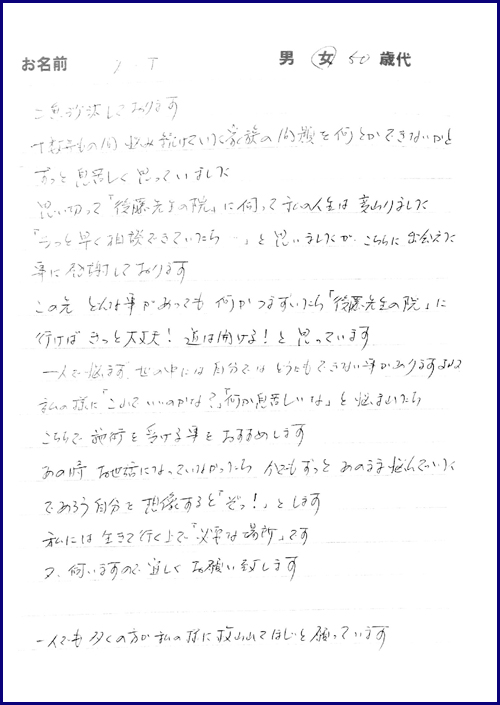 お名前 Y.T 男 女 50 歳代
ご無沙汰しております
十数年もの間 悩み続けていた家族の問題を何とかできないかと
ずっと息苦しく思っていました
思い切って「後藤先生の院」に伺って私の人生は変わりました
「もっと早く相談できていたら…」と思いましたが、こちらに出会えた
事に感謝しております
この先 どんな事があっても 何かつまずいたら「後藤先生の院」に
行けば きっと大丈夫! 道は開ける!と思っています
一人で悩まず、世の中には自分ではどうにもできない事がありますよね
私の様に「これでいいのかな?」「何か息苦しいな」と悩まれたら
こちらで施術を受ける事をおすすめします
あの時 お世話になっていなかったら 今でもずっと あのまま悩んでいた
であろう自分を想像すると「ぞっ!」とします
私には生きて行く上で「必要な場所」です
又、伺いますので宜しくお願い致します
一人でも多くの方が私の様に救われてほしいと願っています